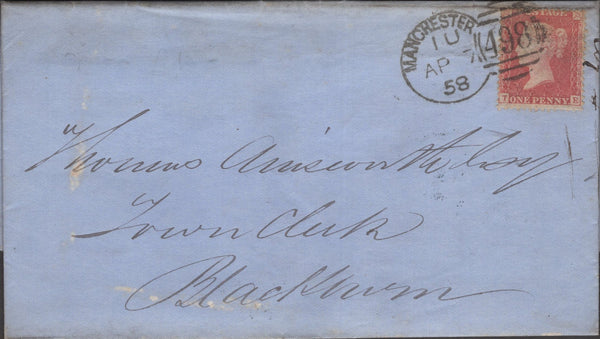 MANCHESTER
1U
AP 7
58
498
POSTAGE
T ONE PENNY E
Thomas Ainsworth Esqr
Town Clerk
Blackburn